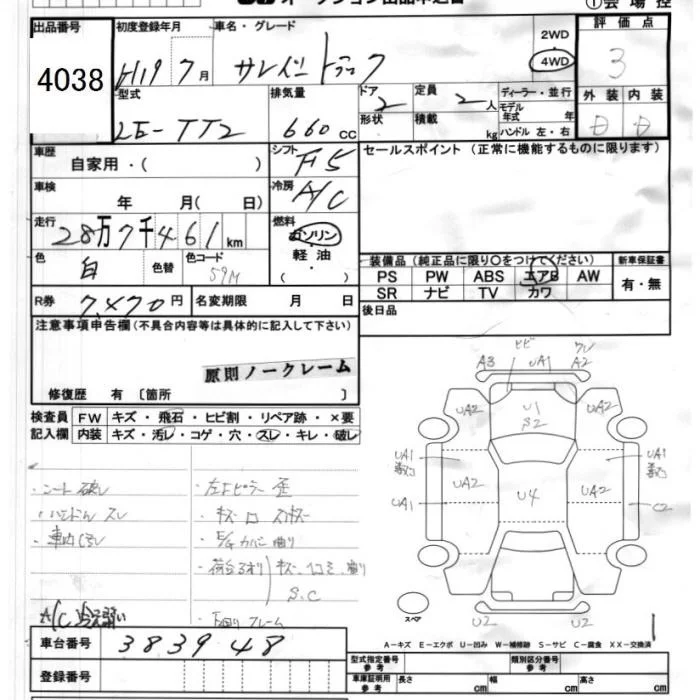 ①会場控
出品番号
4038
初度登録年月
H19 7月
車名・グレード
サンバー トラック
2WD
4WD
評価点
3
型式
LE-TT2
排気量
660 cc
ドア
2
定員
2人
ディーラー・並行
モデル年式 年
形状
積載 kg
ハンドル 左・右
外装
内装
D D
車歴
自家用・( )
シフト
F5
セールスポイント(正常に機能するものに限ります)
車検
年 月( 日)
冷房
A/C
走行
28万7千461 km
燃料
ガソリン
軽油
・( )
色
白
色替
色コード
59M
装備品(純正品に限り○をつけてください)
PS PW ABS エアB AW
SR ナビ TV カワ
新車保証書
有・無
R券
7,470円
名変期限 月 日
後日品
注意事項申告欄(不具合内容等は具体的に記入して下さい)
原則ノークレーム
修復歴 有〔箇所 〕
検査員記入欄
FW キズ・飛石・ヒビ割・リペア跡・×要
内装 キズ・汚レ・コゲ・穴・スレ・キレ・破レ
・シート破レ
・ハンドル スレ
・車内汚レ
A/C 冷え弱い
・左Fピラー歪
・F/Gカバー曲り
S.C
・下廻り フレーム
A3 ヒビ UA1 ワレ A2
UA2 U1 S2 UA2
UA1 UA1
UA2 U4 UA2
UA1 C2
U2 U2
スペア
A-キズ E-エクボ U-凹み W-補修跡 S-サビ C-腐食 XX-交換済
車台番号
383948
登録番号
型式指定番号 参考
類別区分番号 参考
車庫証明用 参考
長さ cm 幅 cm 高さ cm